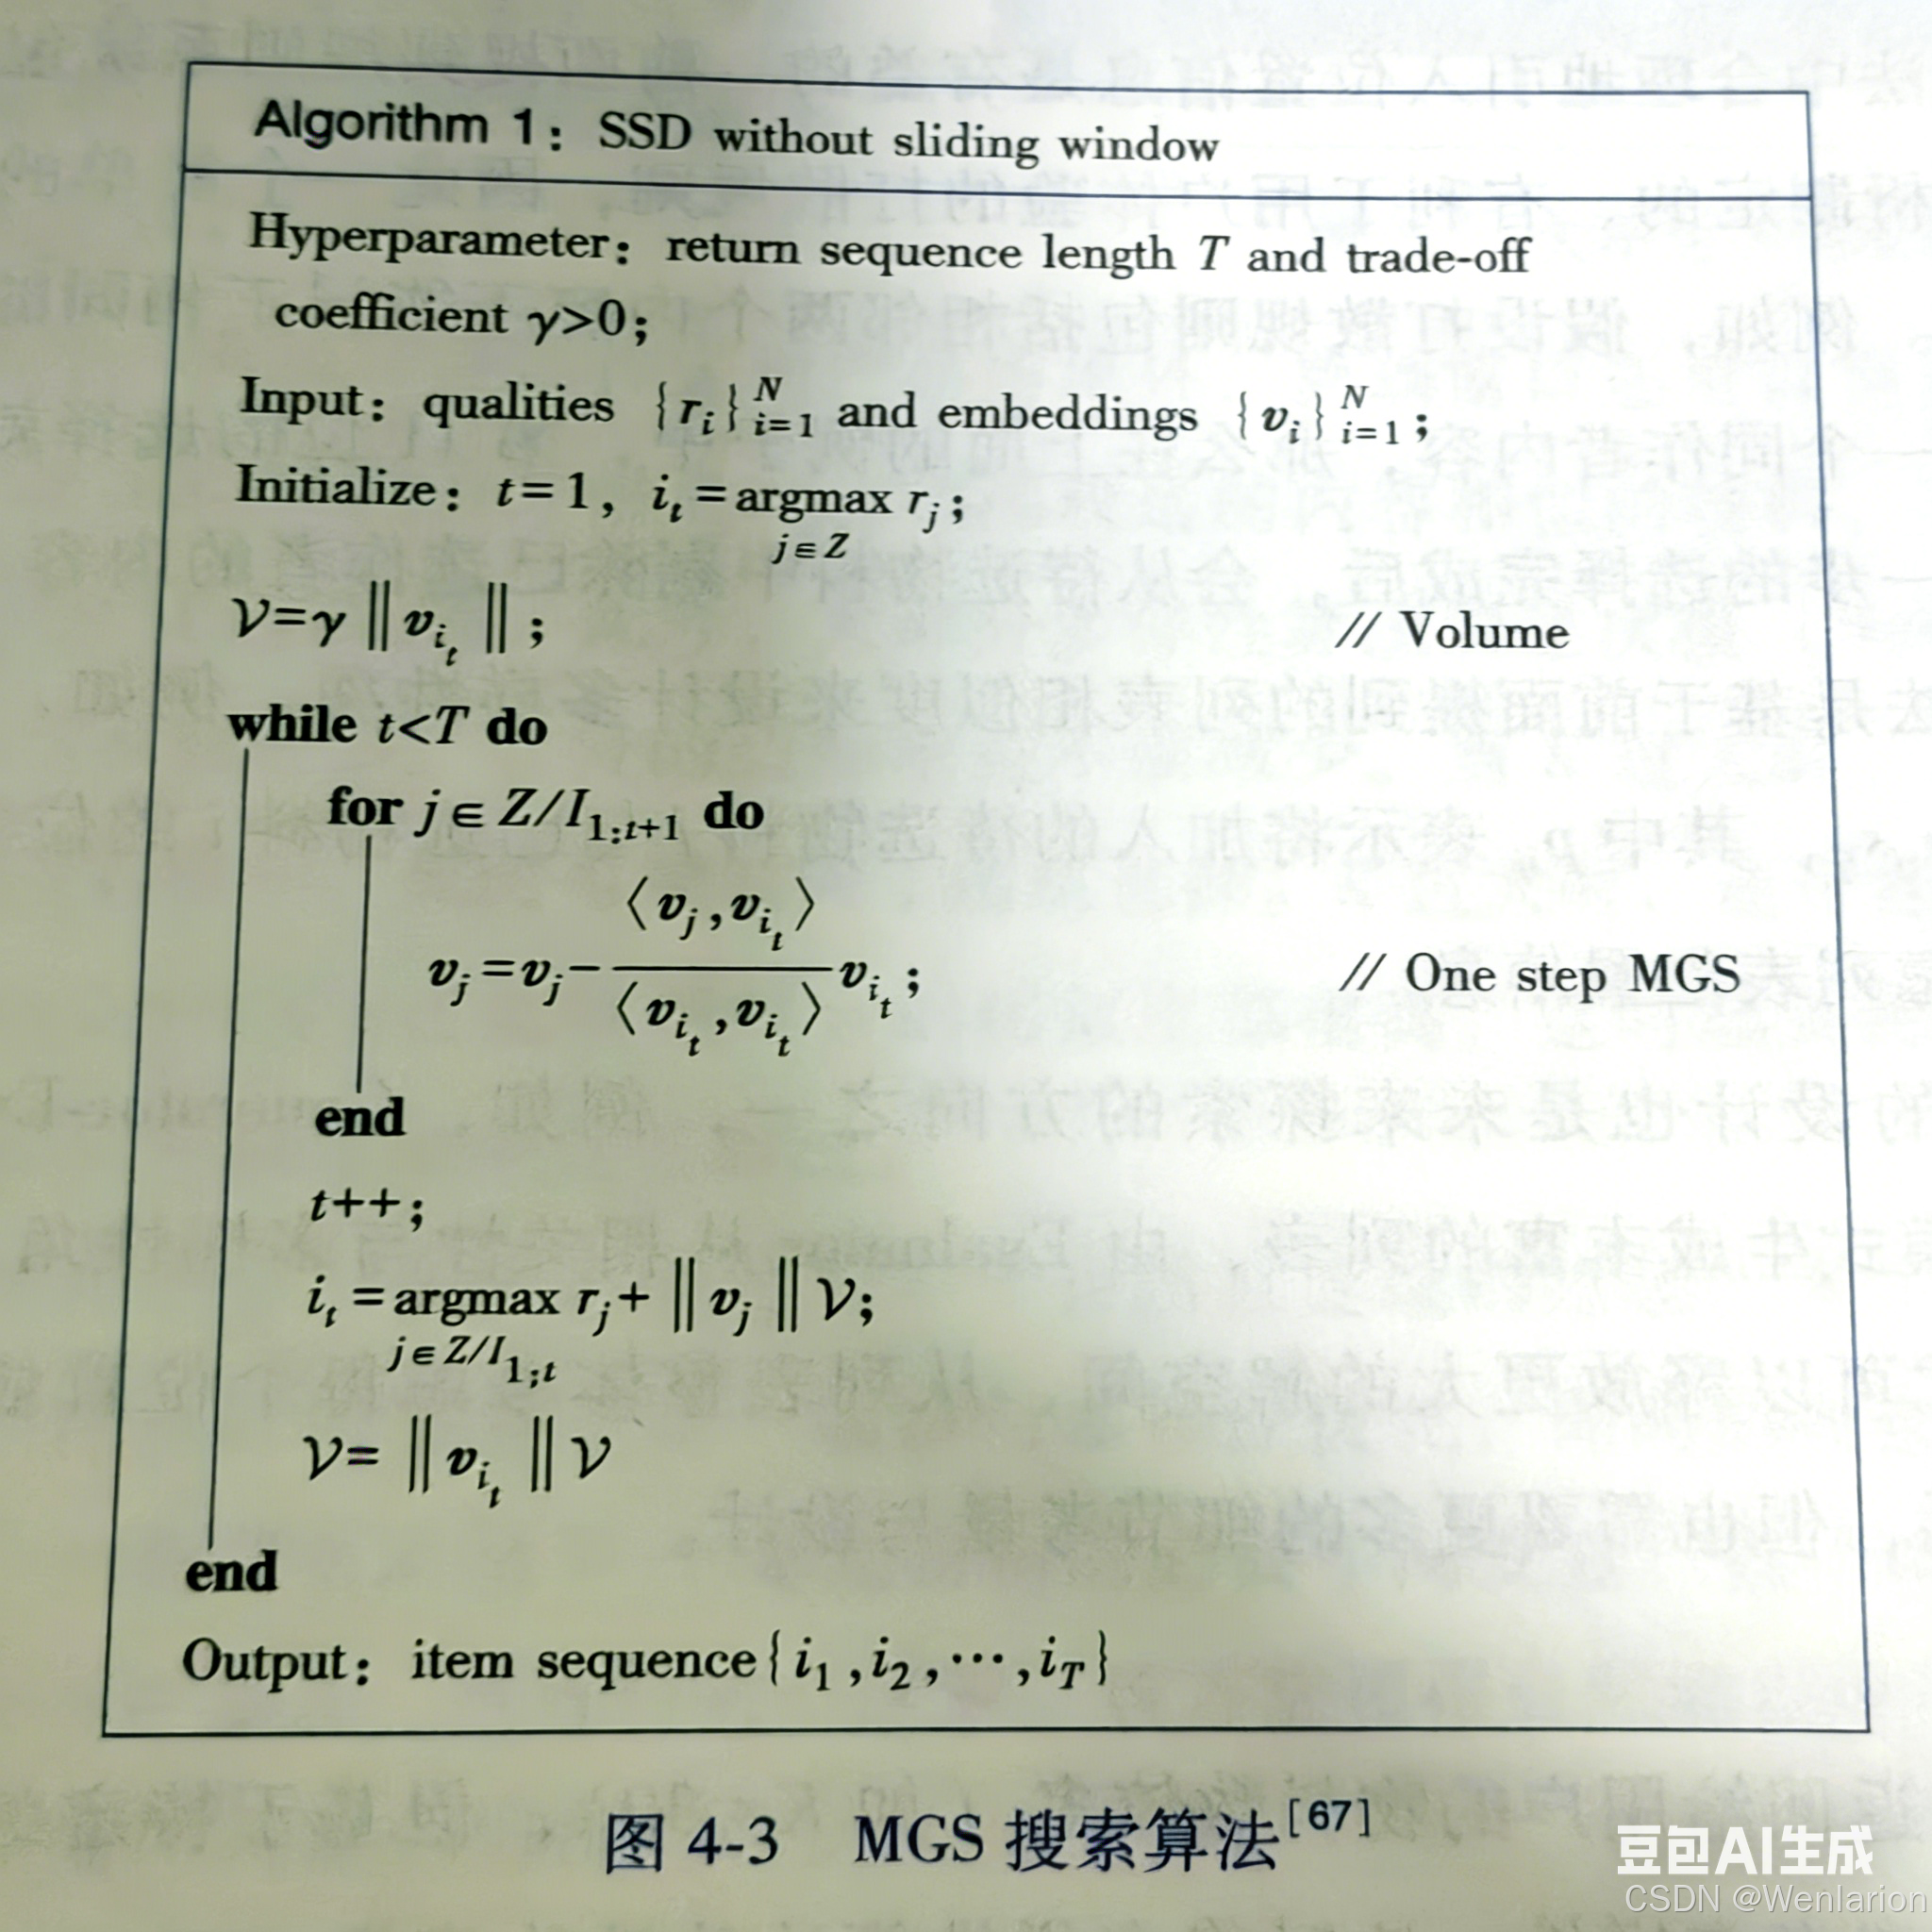 Algorithm 1: SSD without sliding window
Hyperparameter: return sequence length T and trade-off
coefficient γ>0;
Input: qualities {r_i}_{i=1}^N and embeddings {v_i}_{i=1}^N;
Initialize: t=1, i_t=argmax_{j∈Z} r_j;
𝒱=γ‖v_{i_t}‖; // Volume
while t<T do
for j∈Z/I_{1:t+1} do
v_j=v_j-\frac{⟨v_j,v_{i_t}⟩}{⟨v_{i_t},v_{i_t}⟩}v_{i_t}; // One step MGS
end
t++;
i_t=argmax_{j∈Z/I_{1:t}} r_j+‖v_j‖𝒱;
𝒱=‖v_{i_t}‖𝒱
end
Output: item sequence{i_1,i_2,⋯,i_T}
图 4-3 MGS 搜索算法[67]
豆包AI生成
CSDN @Wenlarion